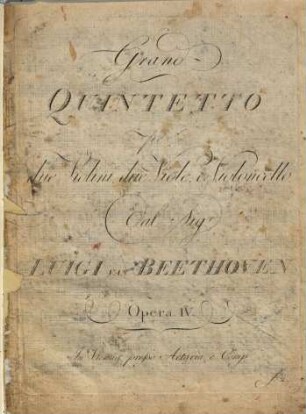 Grand
QUINTETTO
per
due Violini, due Viole, e Violoncello
Dal Sig.r
LUIGI van BEETHOVEN
Opera IV.
In Vienna presso Artaria e Comp.